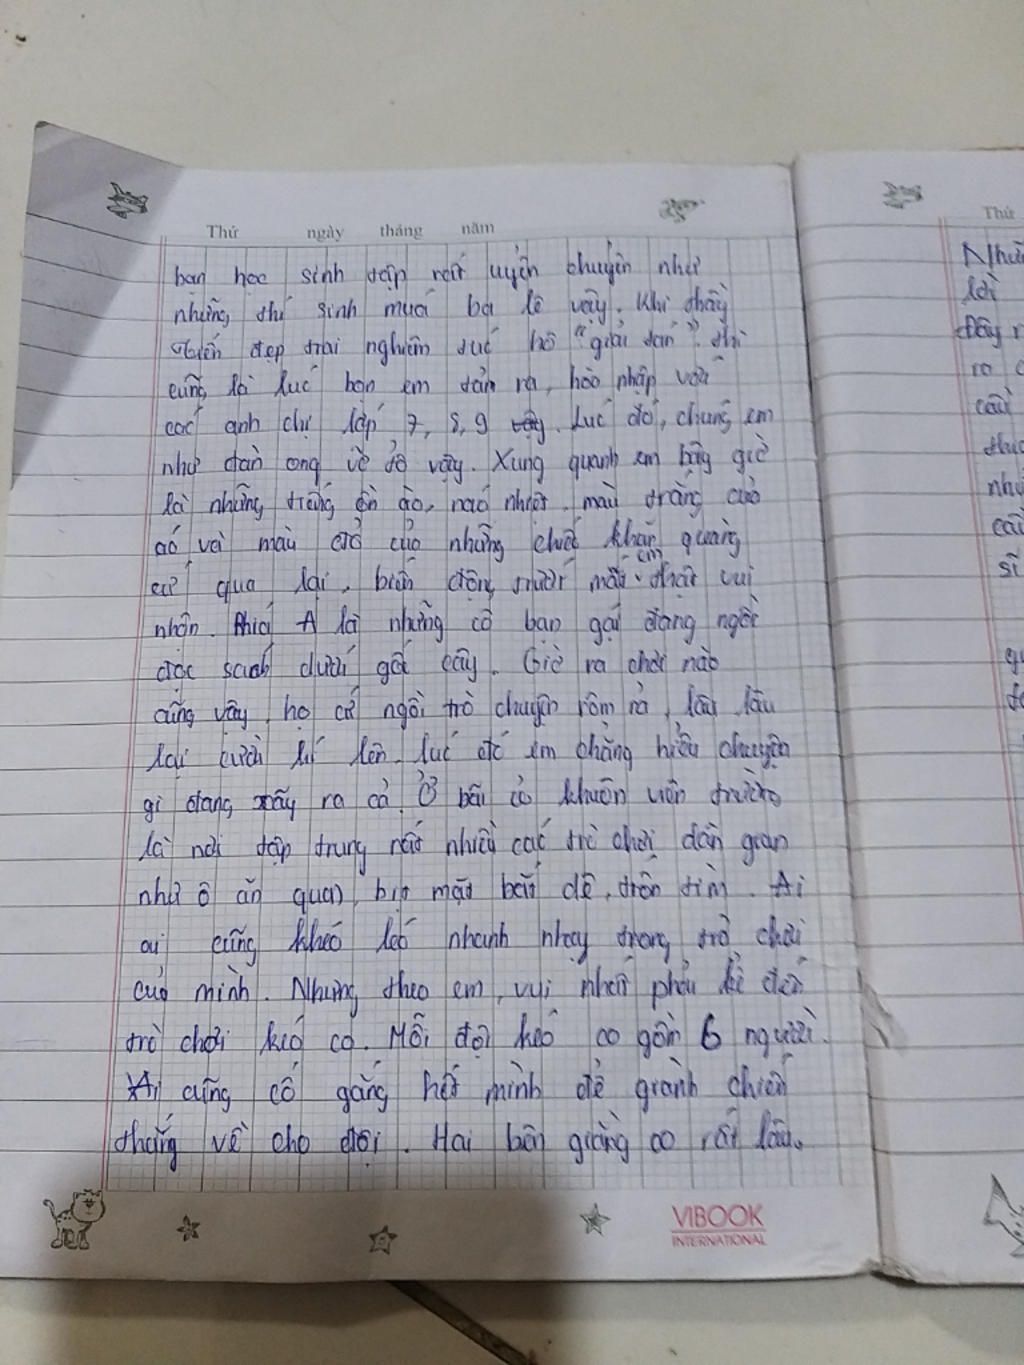 Thứ ngày tháng năm
bạn học sinh tập rất uyển chuyển như
những thí sinh múa ba lê vậy. Khi thầy
đẹp trai nghiêm túc hô "giải tán" thì
cũng là lúc bọn em tản ra, hòa nhập với
các anh chị lớp 7, 8, 9. Lúc đó, chúng em
như đàn ong vỡ tổ vậy. Xung quanh em bây giờ
là những tiếng ồn ào, náo nhiệt, màu trắng của
áo và màu đỏ của những chiếc khăn quàng
cứ qua lại, biến động trước mắt em thật vui
nhộn. Phía A là những cô bạn gái đang ngồi
đọc sách dưới gốc cây. Giờ ra chơi nào
cũng vậy, họ cứ ngồi trò chuyện rôm rả, lâu lâu
lại cười lên. Lúc đó em chẳng hiểu chuyện
gì đang xảy ra cả. Ở bãi cỏ khuôn viên trường
là nơi tập trung rất nhiều các trò chơi dân gian
như ô ăn quan, bịt mắt bắt dê, trốn tìm. Ai
ai cũng khéo léo nhanh nhạy trong trò chơi
của mình. Nhưng theo em, vui nhất phải kể đến
trò chơi kéo co. Mỗi đội kéo co gồm 6 người.
Ai cũng cố gắng hết mình để giành chiến
thắng về cho đội. Hai bên giằng co rất lâu.
VIBOOK
INTERNATIONAL
Thứ
lời
Đây
ra
câu
như
sĩ